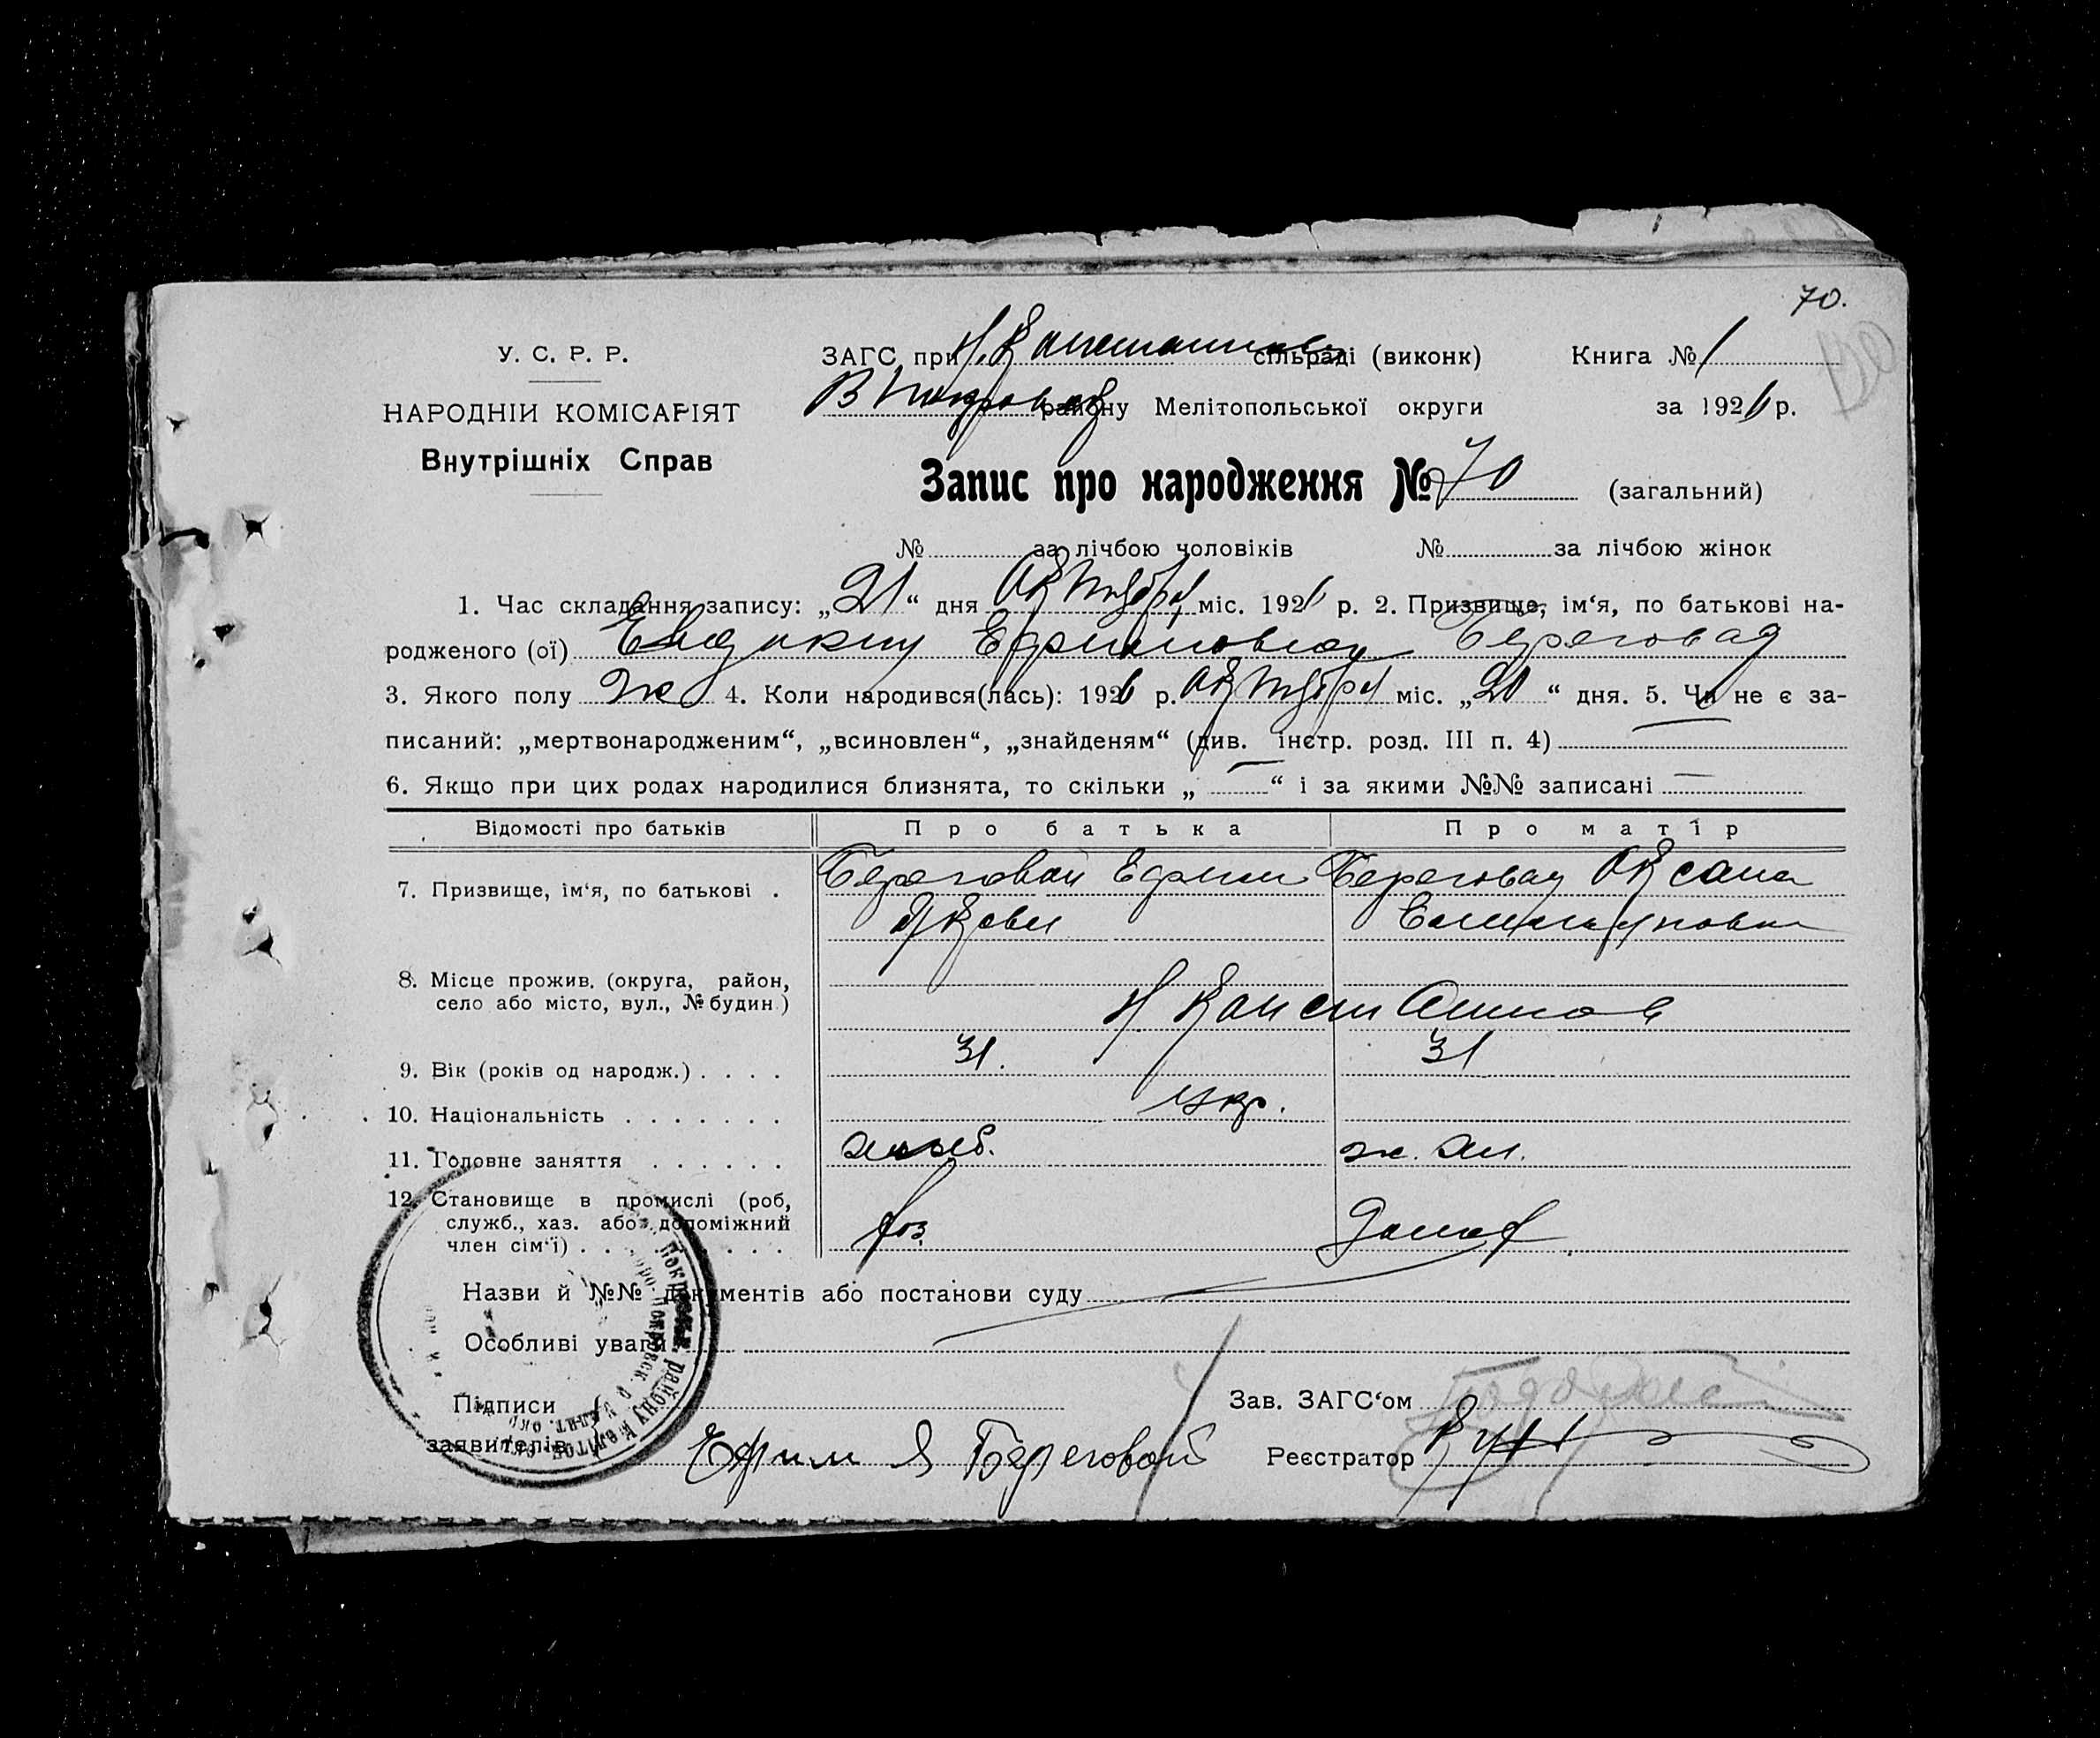 70.
У. С. Р. Р.
НАРОДНІЙ КОМІСАРІЯТ
Внутрішніх Справ
ЗАГС при Н. Константинов сільраді (виконк) Книга № 1
В Покровск району Мелітопольської округи за 1926 р.
Запис про народження № 70 (загальний)
№ за лічбою чоловіків № за лічбою жінок
1. Час складання запису: „21“ дня Октября міс. 1926 р. 2. Призвище, ім‘я, по батькові на-
родженого (ої) Евдокия Ефимовная Береговая
3. Якого полу ж 4. Коли народився(лась): 1926 р. Октября міс. „20“ дня. 5. Чи не є за-
писаний: „мертвонародженим“, „всиновлен“, „знайденям“ (див. інстр. розд. III п. 4) —
6. Якщо при цих родах народилися близнята, то скільки „—“ і за якими №№ записані —
Відомості про батьків Про батька Про матір
7. Призвище, ім‘я, по батькові . Береговой Ефим Береговая Оксана
Яковл Емельяновна
8. Місце прожив. (округа, район,
село або місто, вул., № будин.) Н Константинов
9. Вік (років од народж.) . . . . 31. 31
10. Національність . . . . . . . укр.
11. Головне заняття . . . . . . хлеб. ж. хл.
12. Становище в промислі (роб,
служб., хаз. або допоміжний
член сім‘ї) . . . . . . . . хоз. домох
Назви й №№ документів або постанови суду
Особливі уваги
Підписи
заявителів Ефим Я Береговой
Зав. ЗАГС‘ом
Реєстратор